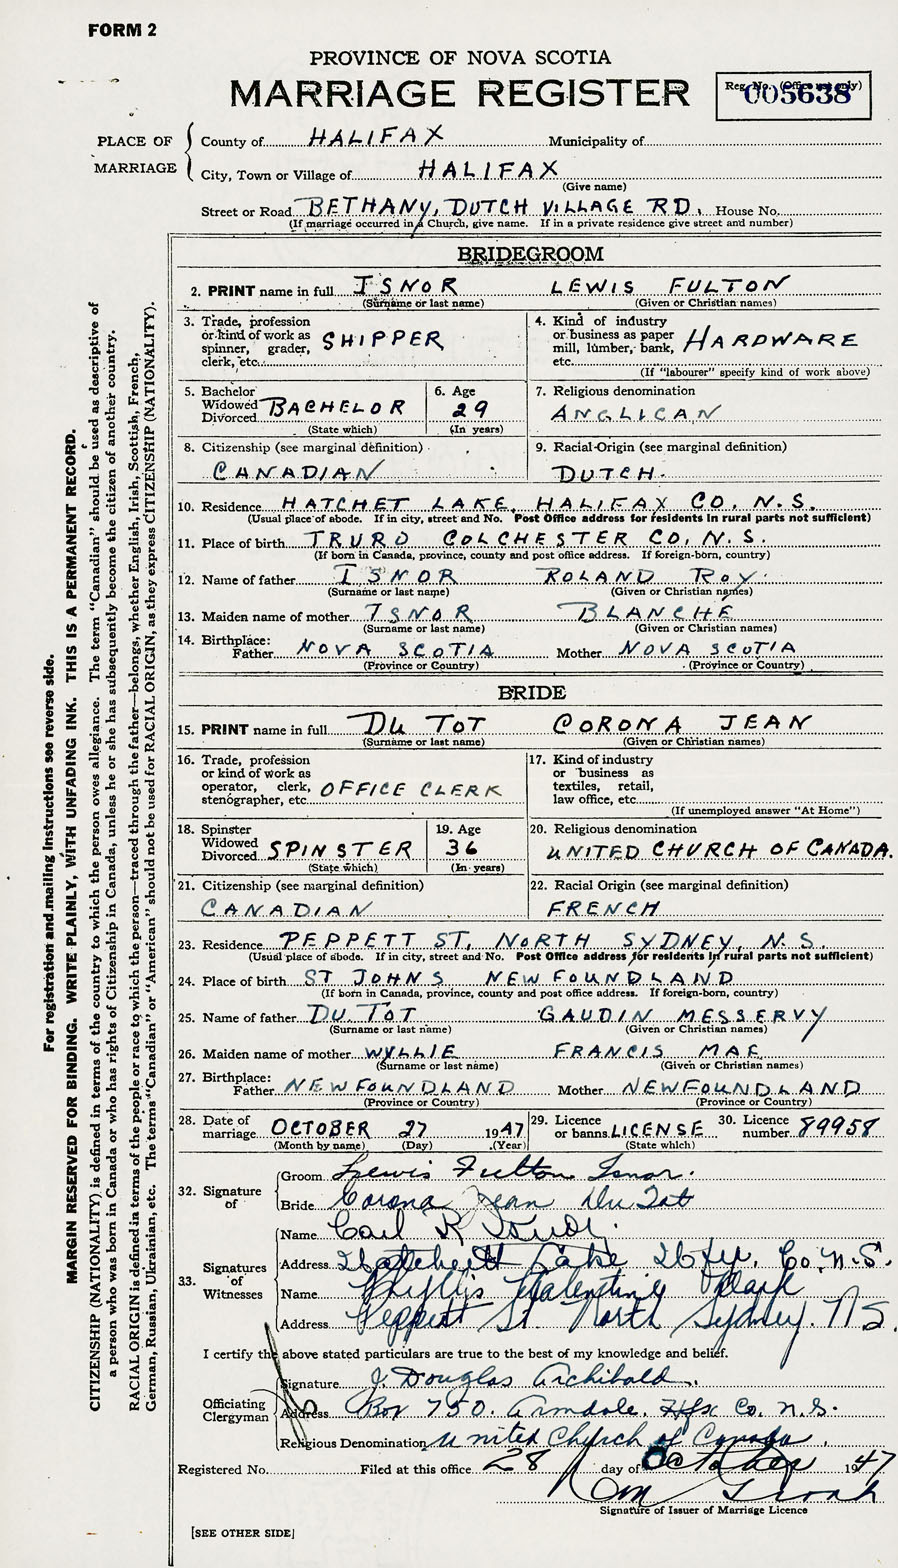 FORM 2
PROVINCE OF NOVA SCOTIA
MARRIAGE REGISTER
Reg. No. (Office use only)
005638
PLACE OF MARRIAGE
County of HALIFAX Municipality of
City, Town or Village of HALIFAX
(Give name)
Street or Road BETHANY, DUTCH VILLAGE RD. House No.
(If marriage occurred in a Church, give name. If in a private residence give street and number)
BRIDEGROOM
2. PRINT name in full ISNOR LEWIS FULTON
(Surname or last name) (Given or Christian names)
3. Trade, profession or kind of work as spinner, grader, clerk, etc. SHIPPER
4. Kind of industry or business as paper mill, lumber, bank, etc. HARDWARE
(If "labourer" specify kind of work above)
5. Bachelor Widowed Divorced BACHELOR
(State which)
6. Age 29
(In years)
7. Religious denomination
ANGLICAN
8. Citizenship (see marginal definition)
CANADIAN
9. Racial-Origin (see marginal definition)
DUTCH
10. Residence HATCHET LAKE, HALIFAX CO, N.S.
(Usual place of abode. If in city, street and No. Post Office address for residents in rural parts not sufficient)
11. Place of birth TRURO COLCHESTER CO, N.S.
(If born in Canada, province, county and post office address. If foreign-born, country)
12. Name of father ISNOR ROLAND ROY
(Surname or last name) (Given or Christian names)
13. Maiden name of mother ISNOR BLANCHE
(Surname or last name) (Given or Christian names)
14. Birthplace:
Father NOVA SCOTIA Mother NOVA SCOTIA
(Province or Country) (Province or Country)
BRIDE
15. PRINT name in full DU TOT CORONA JEAN
(Surname or last name) (Given or Christian names)
16. Trade, profession or kind of work as operator, clerk, stenographer, etc. OFFICE CLERK
17. Kind of industry or business as textiles, retail, law office, etc.
(If unemployed answer "At Home")
18. Spinster Widowed Divorced SPINSTER
(State which)
19. Age 36
(In years)
20. Religious denomination
UNITED CHURCH OF CANADA.
21. Citizenship (see marginal definition)
CANADIAN
22. Racial Origin (see marginal definition)
FRENCH
23. Residence PEPPETT ST, NORTH SYDNEY, N.S.
(Usual place of abode. If in city, street and No. Post Office address for residents in rural parts not sufficient)
24. Place of birth ST JOHNS NEWFOUNDLAND
(If born in Canada, province, county and post office address. If foreign-born, country)
25. Name of father DU TOT GAUDIN MESSERVY
(Surname or last name) (Given or Christian names)
26. Maiden name of mother WYLLIE FRANCIS MAE
(Surname or last name) (Given or Christian names)
27. Birthplace:
Father NEWFOUNDLAND Mother NEWFOUNDLAND
(Province or Country) (Province or Country)
28. Date of marriage OCTOBER 27 1947
(Month by name) (Day) (Year)
29. Licence or banns LICENSE
(State which)
30. Licence number 89958
32. Signature of
Groom Lewis Fulton Isnor.
Bride Corona Jean Du Tot
33. Signatures of Witnesses
Name Carl R
Address Hatchett Lake Hfx. Co. N.S.
Name Phyllis
Address Peppett St. North Sydney. N.S.
I certify the above stated particulars are true to the best of my knowledge and belief.
Officiating Clergyman
Signature J. Douglas Archibald.
Address Box 750. Armdale. Hfx Co. N.S.
Religious Denomination United Church of Canada.
Registered No. Filed at this office 28 day of October 1947
Signature of Issuer of Marriage Licence
[SEE OTHER SIDE]
For registration and mailing instructions see reverse side.
MARGIN RESERVED FOR BINDING. WRITE PLAINLY, WITH UNFADING INK. THIS IS A PERMANENT RECORD.
CITIZENSHIP (NATIONALITY) is defined in terms of the country to which the person owes allegiance. The term "Canadian" should be used as descriptive of
a person who was born in Canada or who has rights of Citizenship in Canada, unless he or she has subsequently become the citizen of another country.
RACIAL ORIGIN is defined in terms of the people or race to which the person—traced through the father—belongs, whether English, Irish, Scottish, French,
German, Russian, Ukrainian, etc. The terms "Canadian" or "American" should not be used for RACIAL ORIGIN, as they express CITIZENSHIP (NATIONALITY).